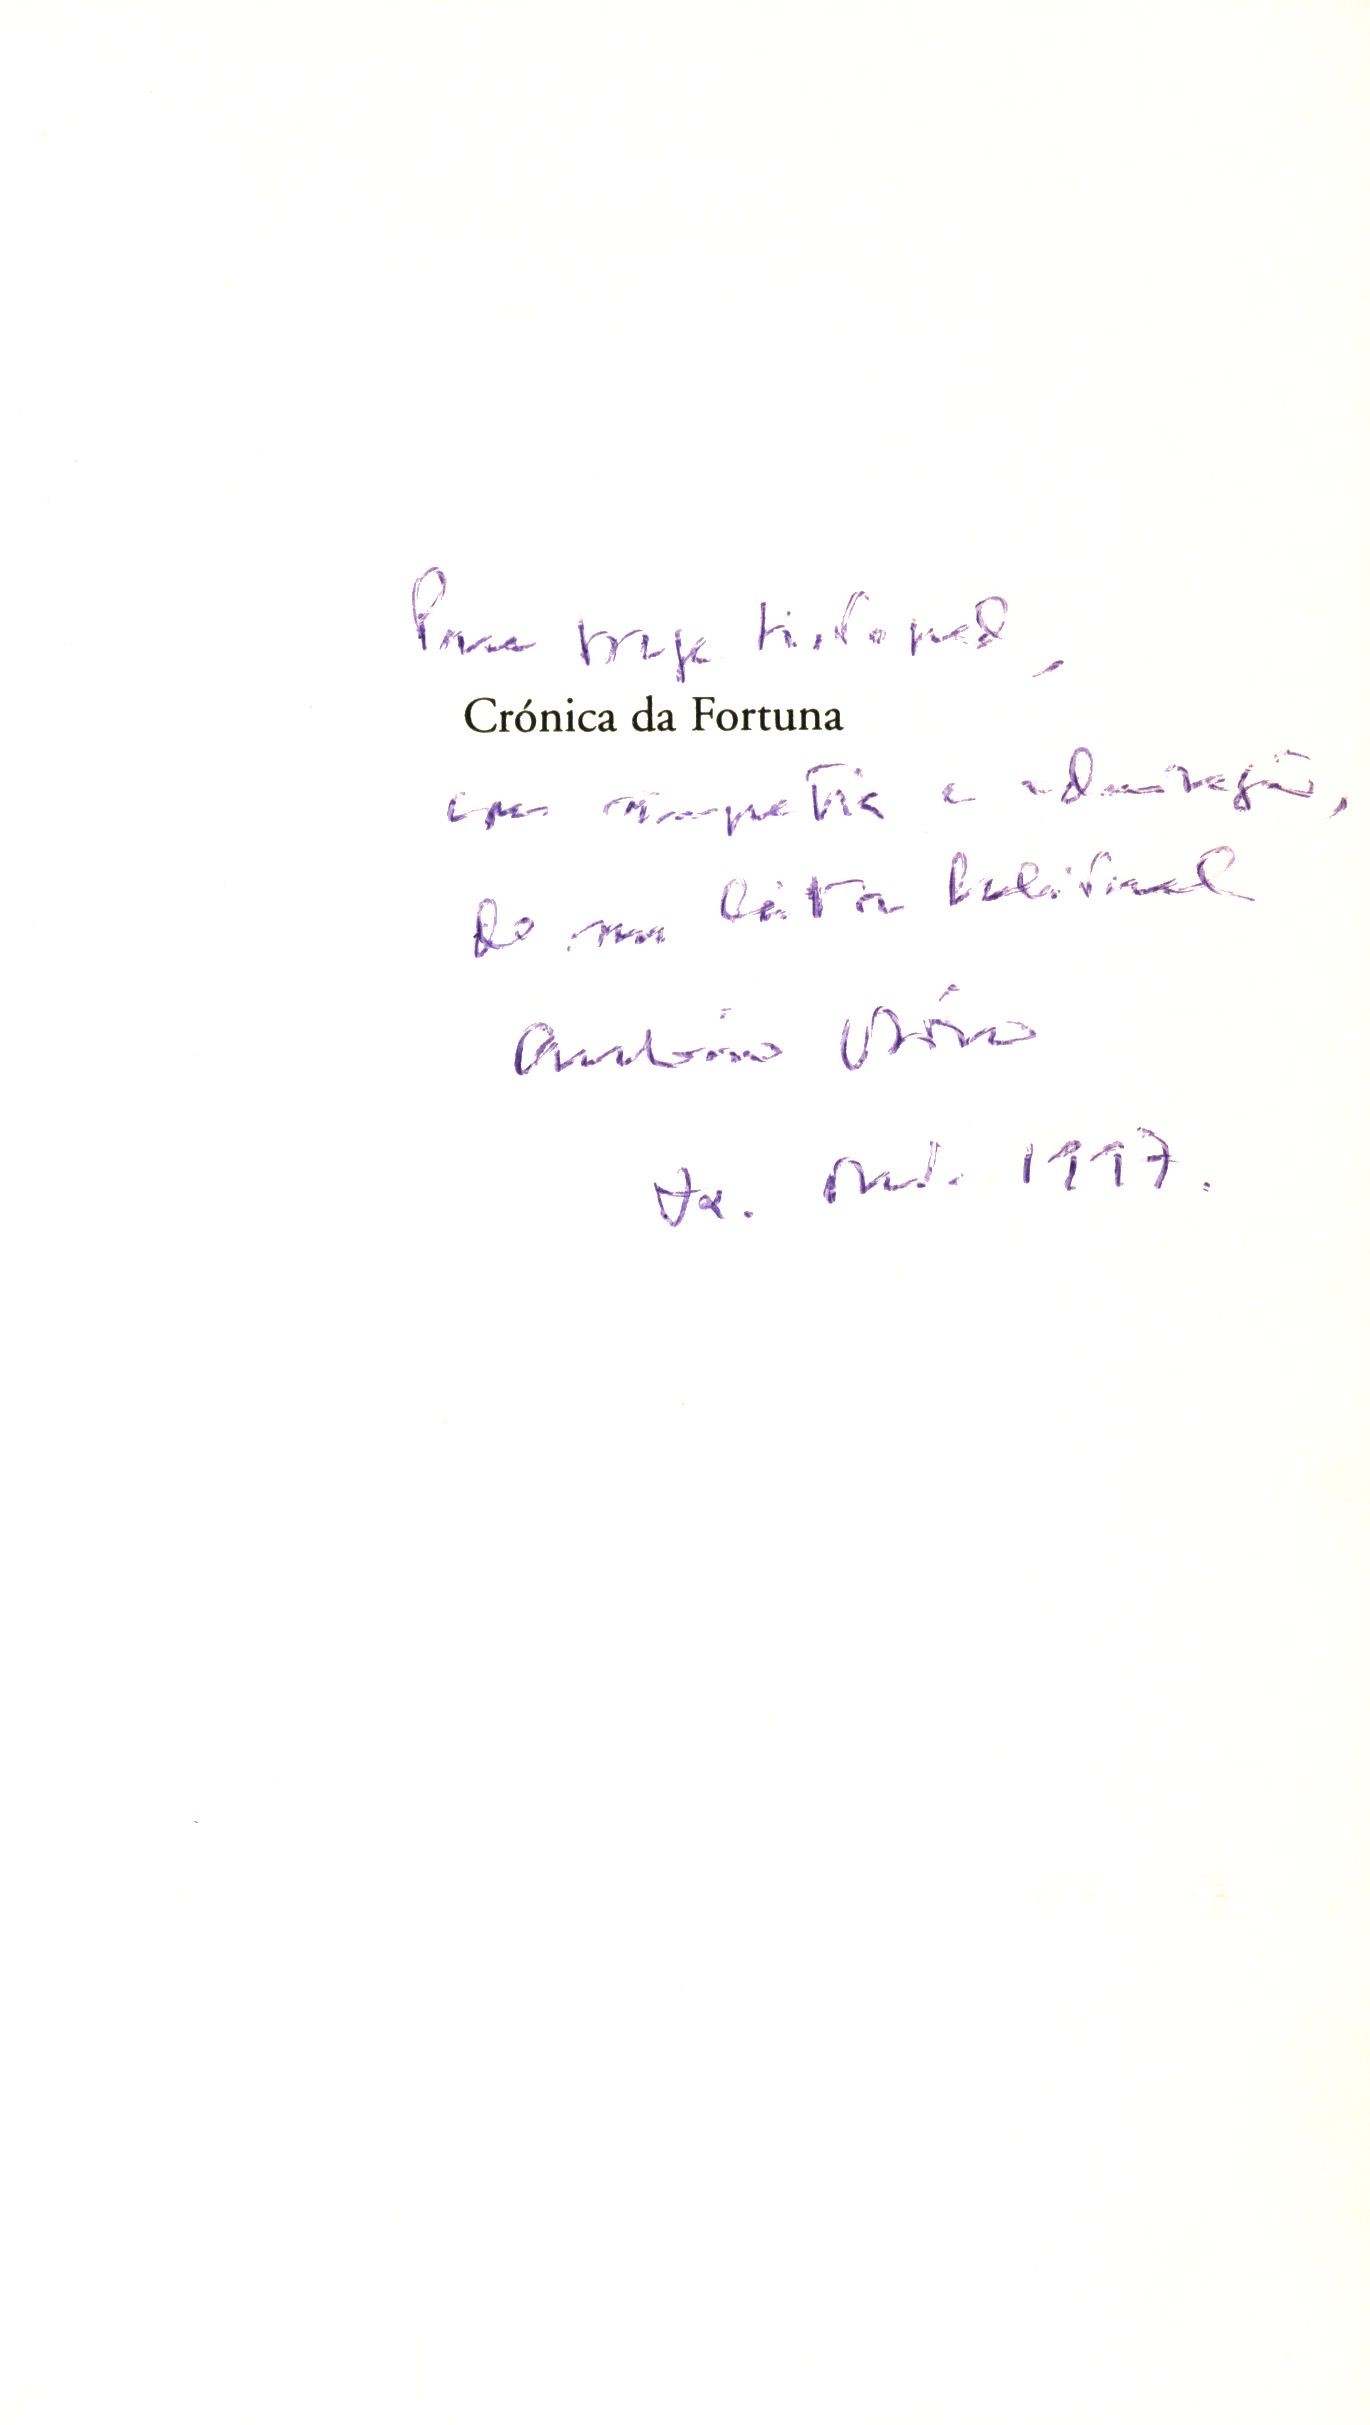 Para
Crónica da Fortuna
com simpatia e admiração,
do seu leitor habitual
António Osório
Lx. Out. 1997.